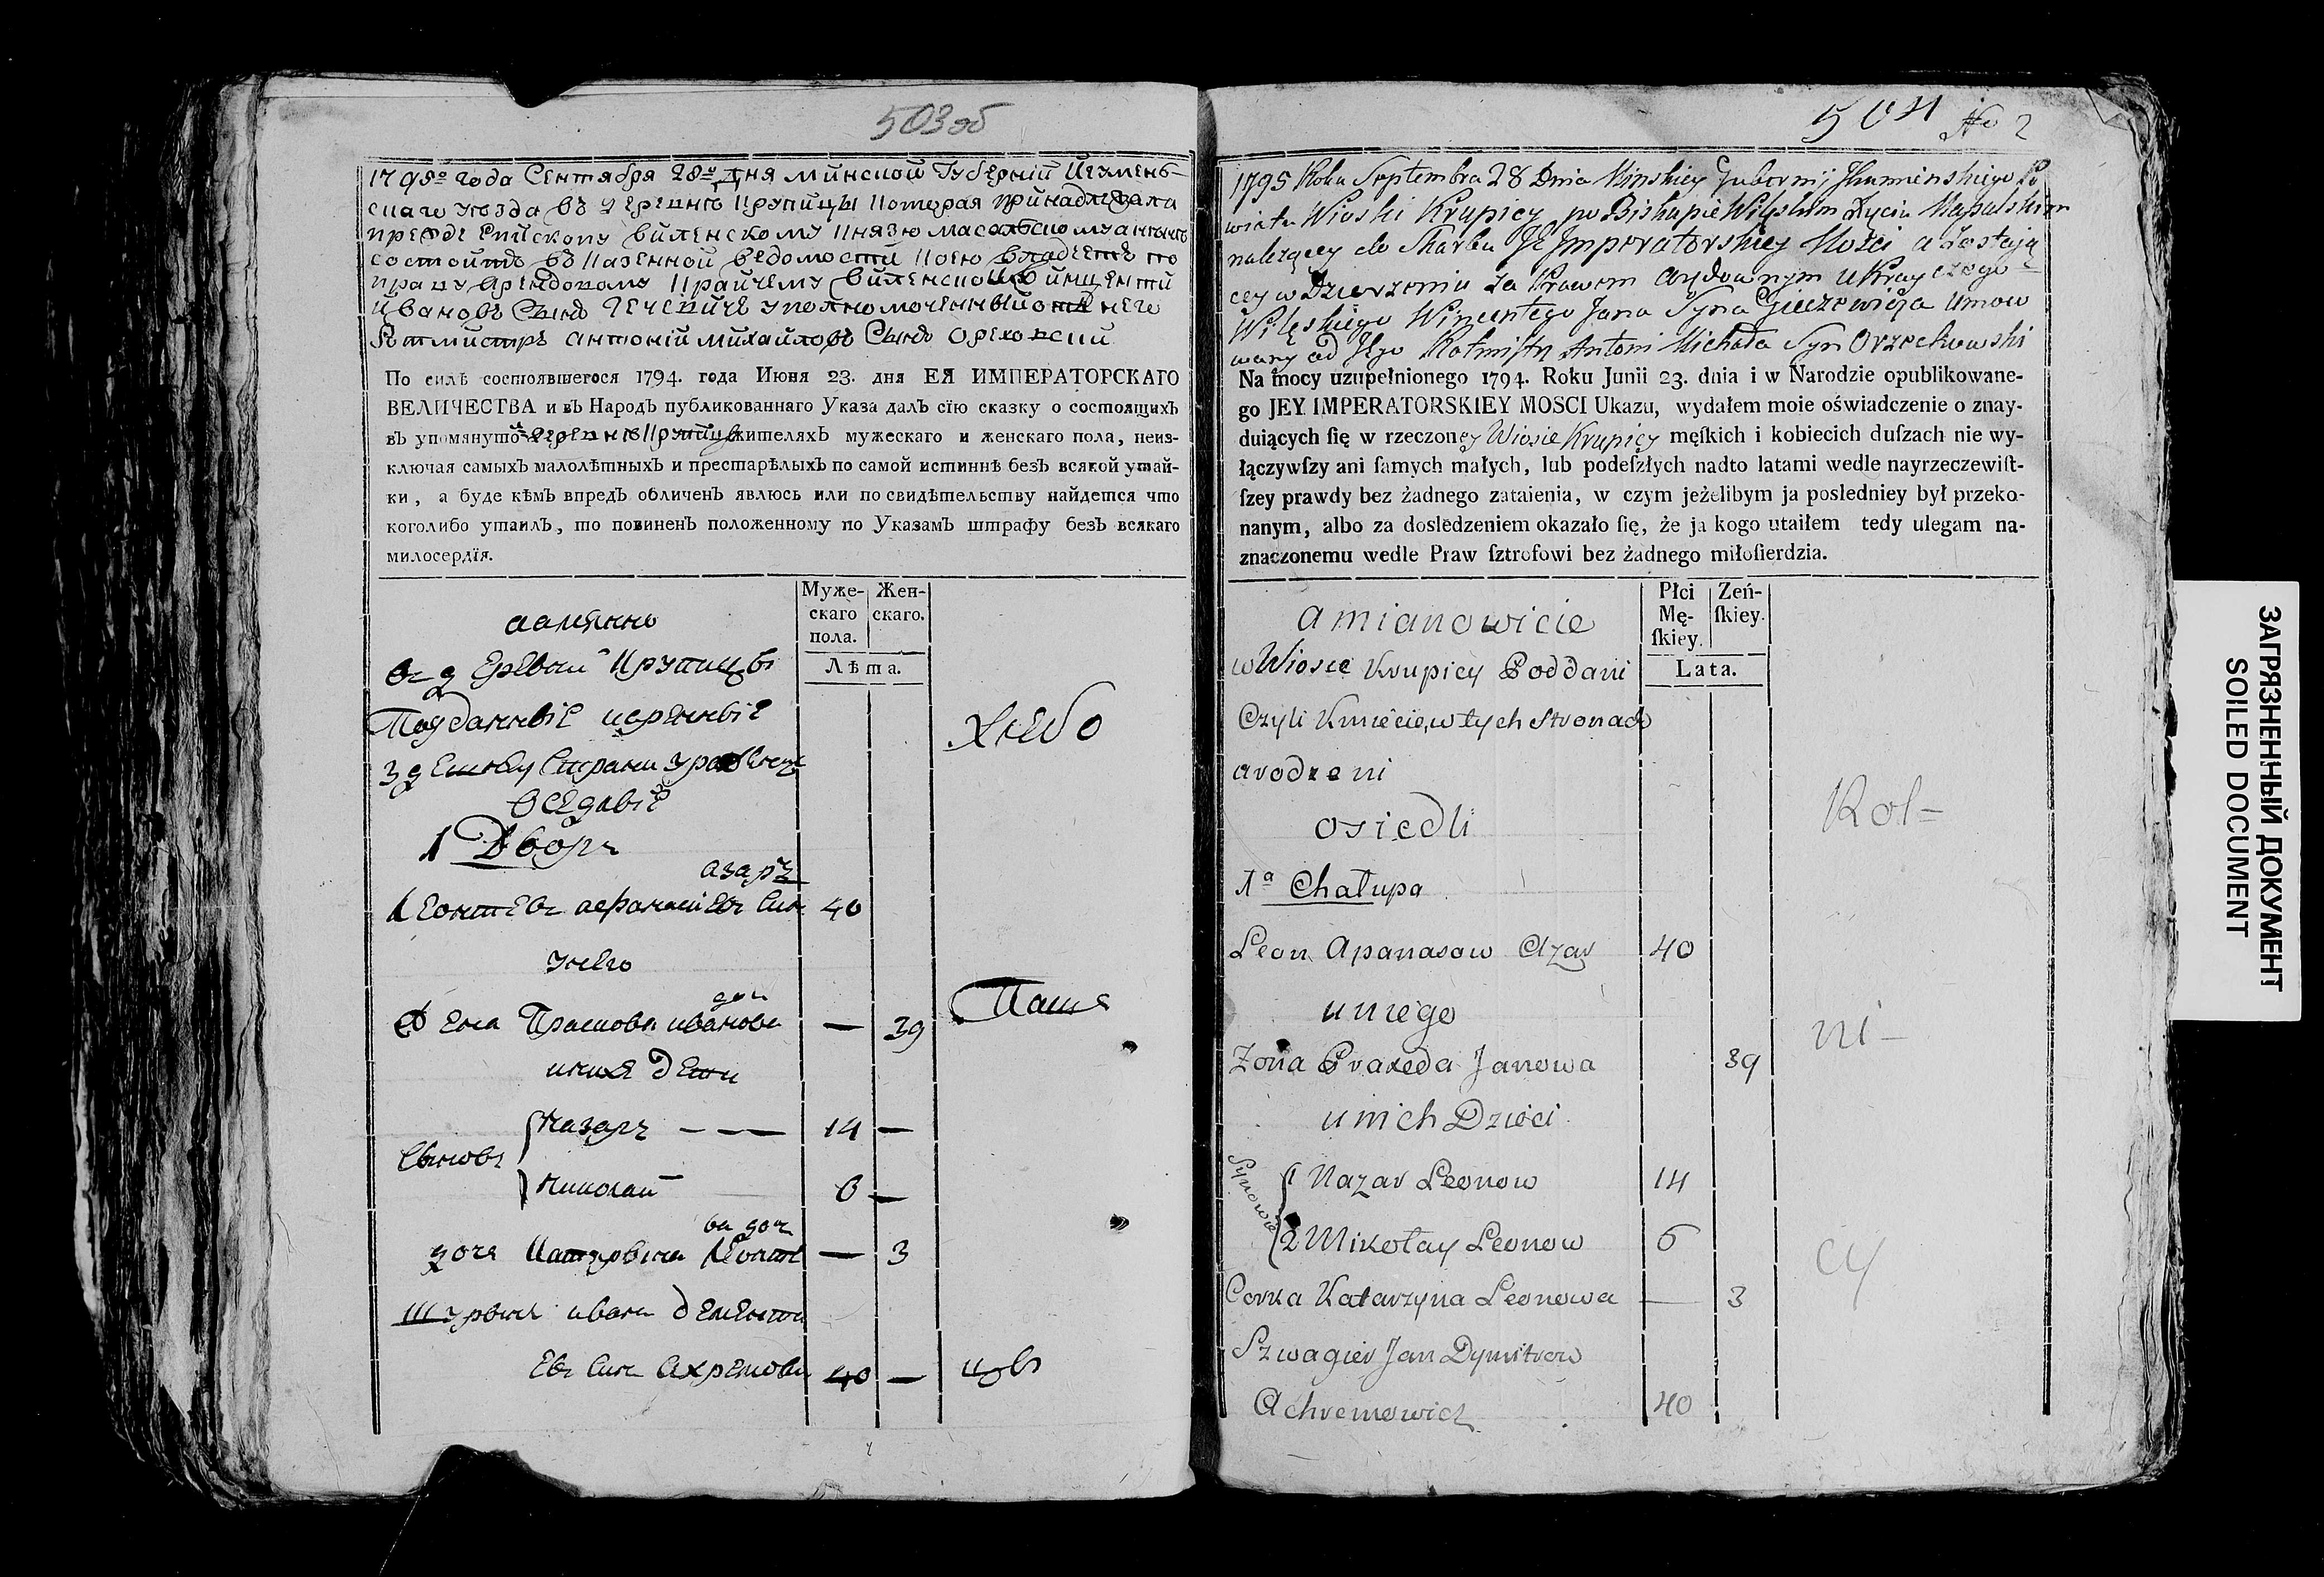 503 об
1795го года Сентября 28го дня Минской Губернии Игумень-
скаго уезда въ деревне Крупицы которая принадлежала
прежде Епископу Виленскому Князю Масальскому а нынѣ
состоитъ въ Казенной ведомости коею владеетъ по
праву Арендовному Крайчему Виленской Винцентий
Ивановъ Сынъ Гечевиче уполномоченный отъ него
Ротмистръ Антоний Михайловъ Сынъ Ореховский
По силѣ состоявшегося 1794. года Июня 23. дня ЕЯ ИМПЕРАТОРСКАГО
ВЕЛИЧЕСТВА и въ Народъ публикованнаго Указа далъ сїю сказку о состоящихъ
въ упомянутой деревне Крупицы жителяхъ мужескаго и женскаго пола, неиз-
ключая самыхъ малолѣтныхъ и престарѣлыхъ по самой истиннѣ безъ всякой утай-
ки, а буде кѣмъ впредъ обличенъ явлюсь или по свидѣтельству найдется что
коголибо утаилъ, то повиненъ положенному по Указамъ штрафу безъ всякаго
милосердїя.
Муже-скаго пола. Жен-скаго.
Лѣта.
а имянно
въ деревни Крупицы
Подданные коренные
здешнеи Страны уроженцы
оседлые
1 Дворъ
азаръ
Леонтеъ афанасиевъ Сын 40
у него
доч
Жена Прасковя иванова — 39
у них дети
Сыновъ
Назаръ — — — 14 —
Николай 6 —
ва доч
дочь Катерына Леонте — 3
Шурынъ иванъ дементи
евъ Сын Ахремови 40 —
504 No 2
1795 Roku Septembra 28 Dnia Minskiey Gubernij Ihumenskiego Po
wiatu Wioski Krupicy po Biskupie Wilenskim Xięciu Massalskim
należącey do Skarbu JE Jmperatorskiey Mości a zostają
cey w Dzierżeniu za Prawem arędownym u Krayczego
Wileńskiego Wincentego Jana Syna Gieczewicza Umow
wany od Jego Rotmistrz Antoni Michała Syn Orzechowski
Na mocy uzupełnionego 1794. Roku Junii 23. dnia i w Narodzie opublikowane-
go JEY IMPERATORSKIEY MOSCI Ukazu, wydałem moie oświadczenie o znay-
duiących ſię w rzeczoney Wiosie Krupicy męſkich i kobiecich duſzach nie wy-
łączywſzy ani ſamych małych, lub podeſzłych nadto latami wedle nayrzeczewiſt-
ſzey prawdy bez żadnego zataienia, w czym jeżelibym ja posledniey był przeko-
nanym, albo za dosledzeniem okazało ſię, że ja kogo utaiłem tedy ulegam na-
znaczonemu wedle Praw ſztrofowi bez żadnego miłoſierdzia.
Płci Mę-ſkiey. Zeń-ſkiey.
Lata.
amianowicie
w Wiosce Krupicy Poddani
Czyli Kmiecie, w tych Stronach
arodzeni
osiedli
1a Chałupa
Leon Apanasow Azar 40
u niego
Zona Praxeda Janowa 39
u nich Dzieci
Synowie
1 Nazar Leonow 14
2 Mikołay Leonow 6
Corka Katarzyna Leonowa — 3
Szwagier Jan Dymitrow
Achremowicz 40
Kol-
ni-
cy
ЗАГРЯЗНЕННЫЙ ДОКУМЕНТ
SOILED DOCUMENT